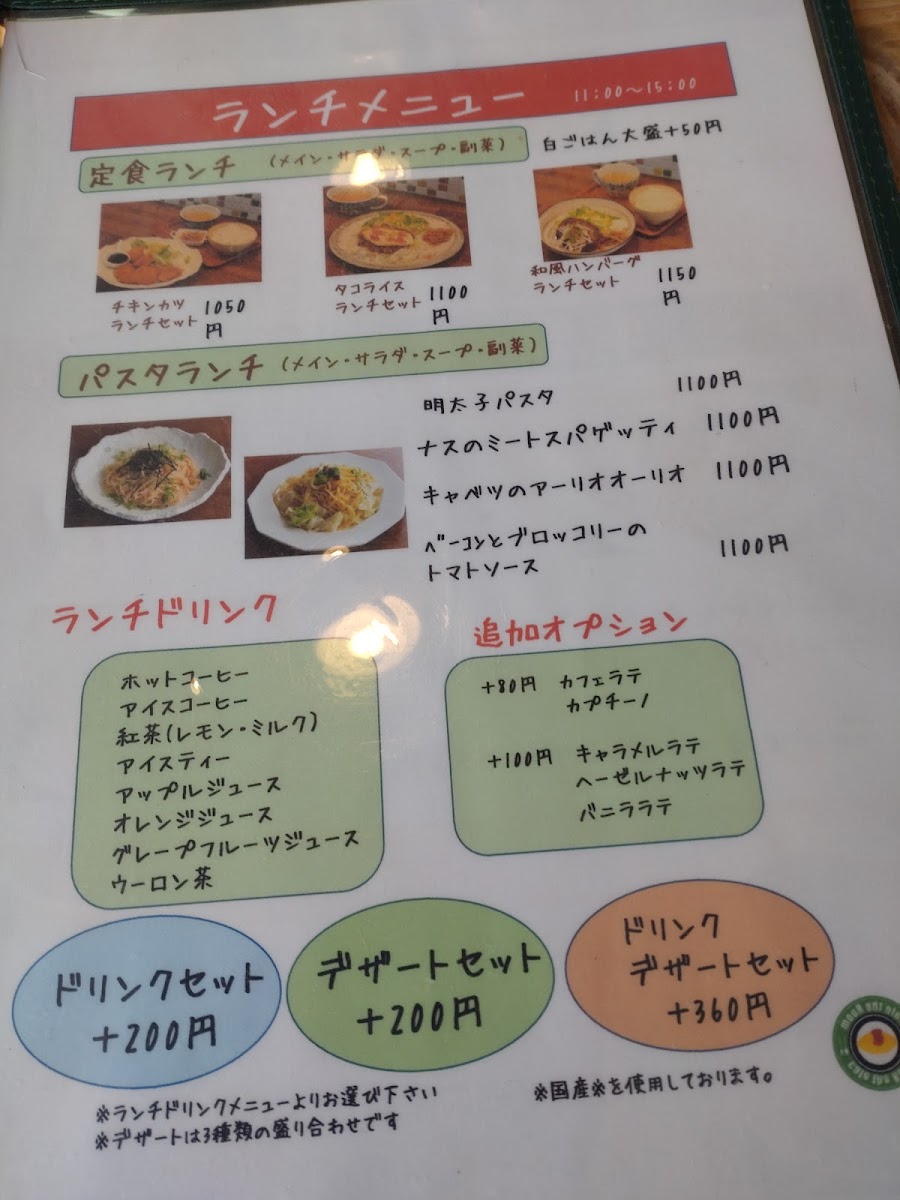 ランチメニュー 11:00～15:00
定食ランチ (メイン・サラダ・スープ・副菜)
白ごはん大盛+50円
チキンカツ
ランチセット
1050
円
タコライス
ランチセット
1100
円
和風ハンバーグ
ランチセット
1150
円
パスタランチ (メイン・サラダ・スープ・副菜)
明太子パスタ 1100円
ナスのミートスパゲッティ 1100円
キャベツのアーリオオーリオ 1100円
ベーコンとブロッコリーの
トマトソース 1100円
ランチドリンク
ホットコーヒー
アイスコーヒー
紅茶(レモン・ミルク)
アイスティー
アップルジュース
オレンジジュース
グレープフルーツジュース
ウーロン茶
追加オプション
+80円 カフェラテ
カプチーノ
+100円 キャラメルラテ
ヘーゼルナッツラテ
バニララテ
ドリンクセット
+200円
デザートセット
+200円
ドリンク
デザートセット
+360円
※ランチドリンクメニューよりお選び下さい
※デザートは3種類の盛り合わせです
※国産※を使用しております。